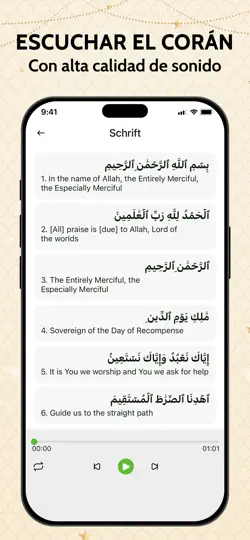 ESCUCHAR EL CORÁN
Con alta calidad de sonido
9:41
Schrift
بِسْمِ ٱللَّهِ ٱلرَّحْمَٰنِ ٱلرَّحِيمِ
1. In the name of Allah, the Entirely Merciful,
the Especially Merciful
ٱلْحَمْدُ لِلَّهِ رَبِّ ٱلْعَٰلَمِينَ
2. [All] praise is [due] to Allah, Lord of
the worlds
ٱلرَّحْمَٰنِ ٱلرَّحِيمِ
3. The Entirely Merciful, the
Especially Merciful
مَٰلِكِ يَوْمِ ٱلدِّينِ
4. Sovereign of the Day of Recompense
إِيَّاكَ نَعْبُدُ وَإِيَّاكَ نَسْتَعِينُ
5. It is You we worship and You we ask for help
ٱهْدِنَا ٱلصِّرَٰطَ ٱلْمُسْتَقِيمَ
6. Guide us to the straight path
00:00 01:01